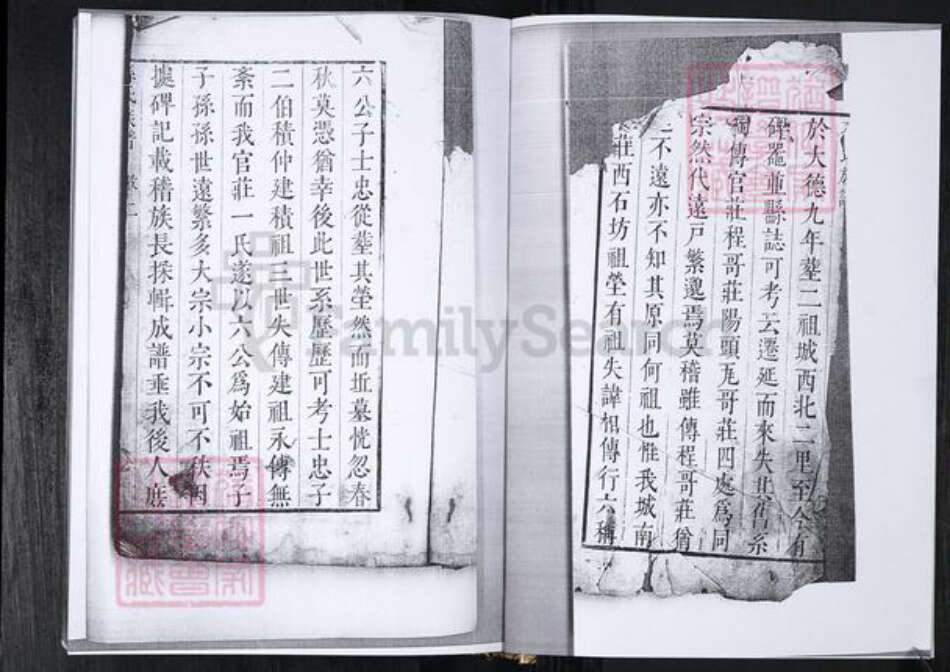 於大德九年塟二祖城西北二里至今有
碑罨並縣誌可考云遷延而來失其舊系
獨傳官莊程哥莊陽頭瓦哥莊四處為同
宗然代遠戸繁邈焉莫稽雖傳程哥莊
不遠亦不知其原同何祖也惟我城南
莊西石坊祖塋有祖失諱相傳行六稱
六公子士忠從塟其塋然而坵墓恍忽春
秋莫憑猶幸後此世系歷歷可考士忠子
二伯積仲建積祖三世失傳建祖永傅無
紊而我官莊一氏遂以六公爲始祖焉子
子孫孫世遠繁多大宗小宗不可不秩因
據碑記載稽族長採輯成譜垂我後人庶
FamilySearch